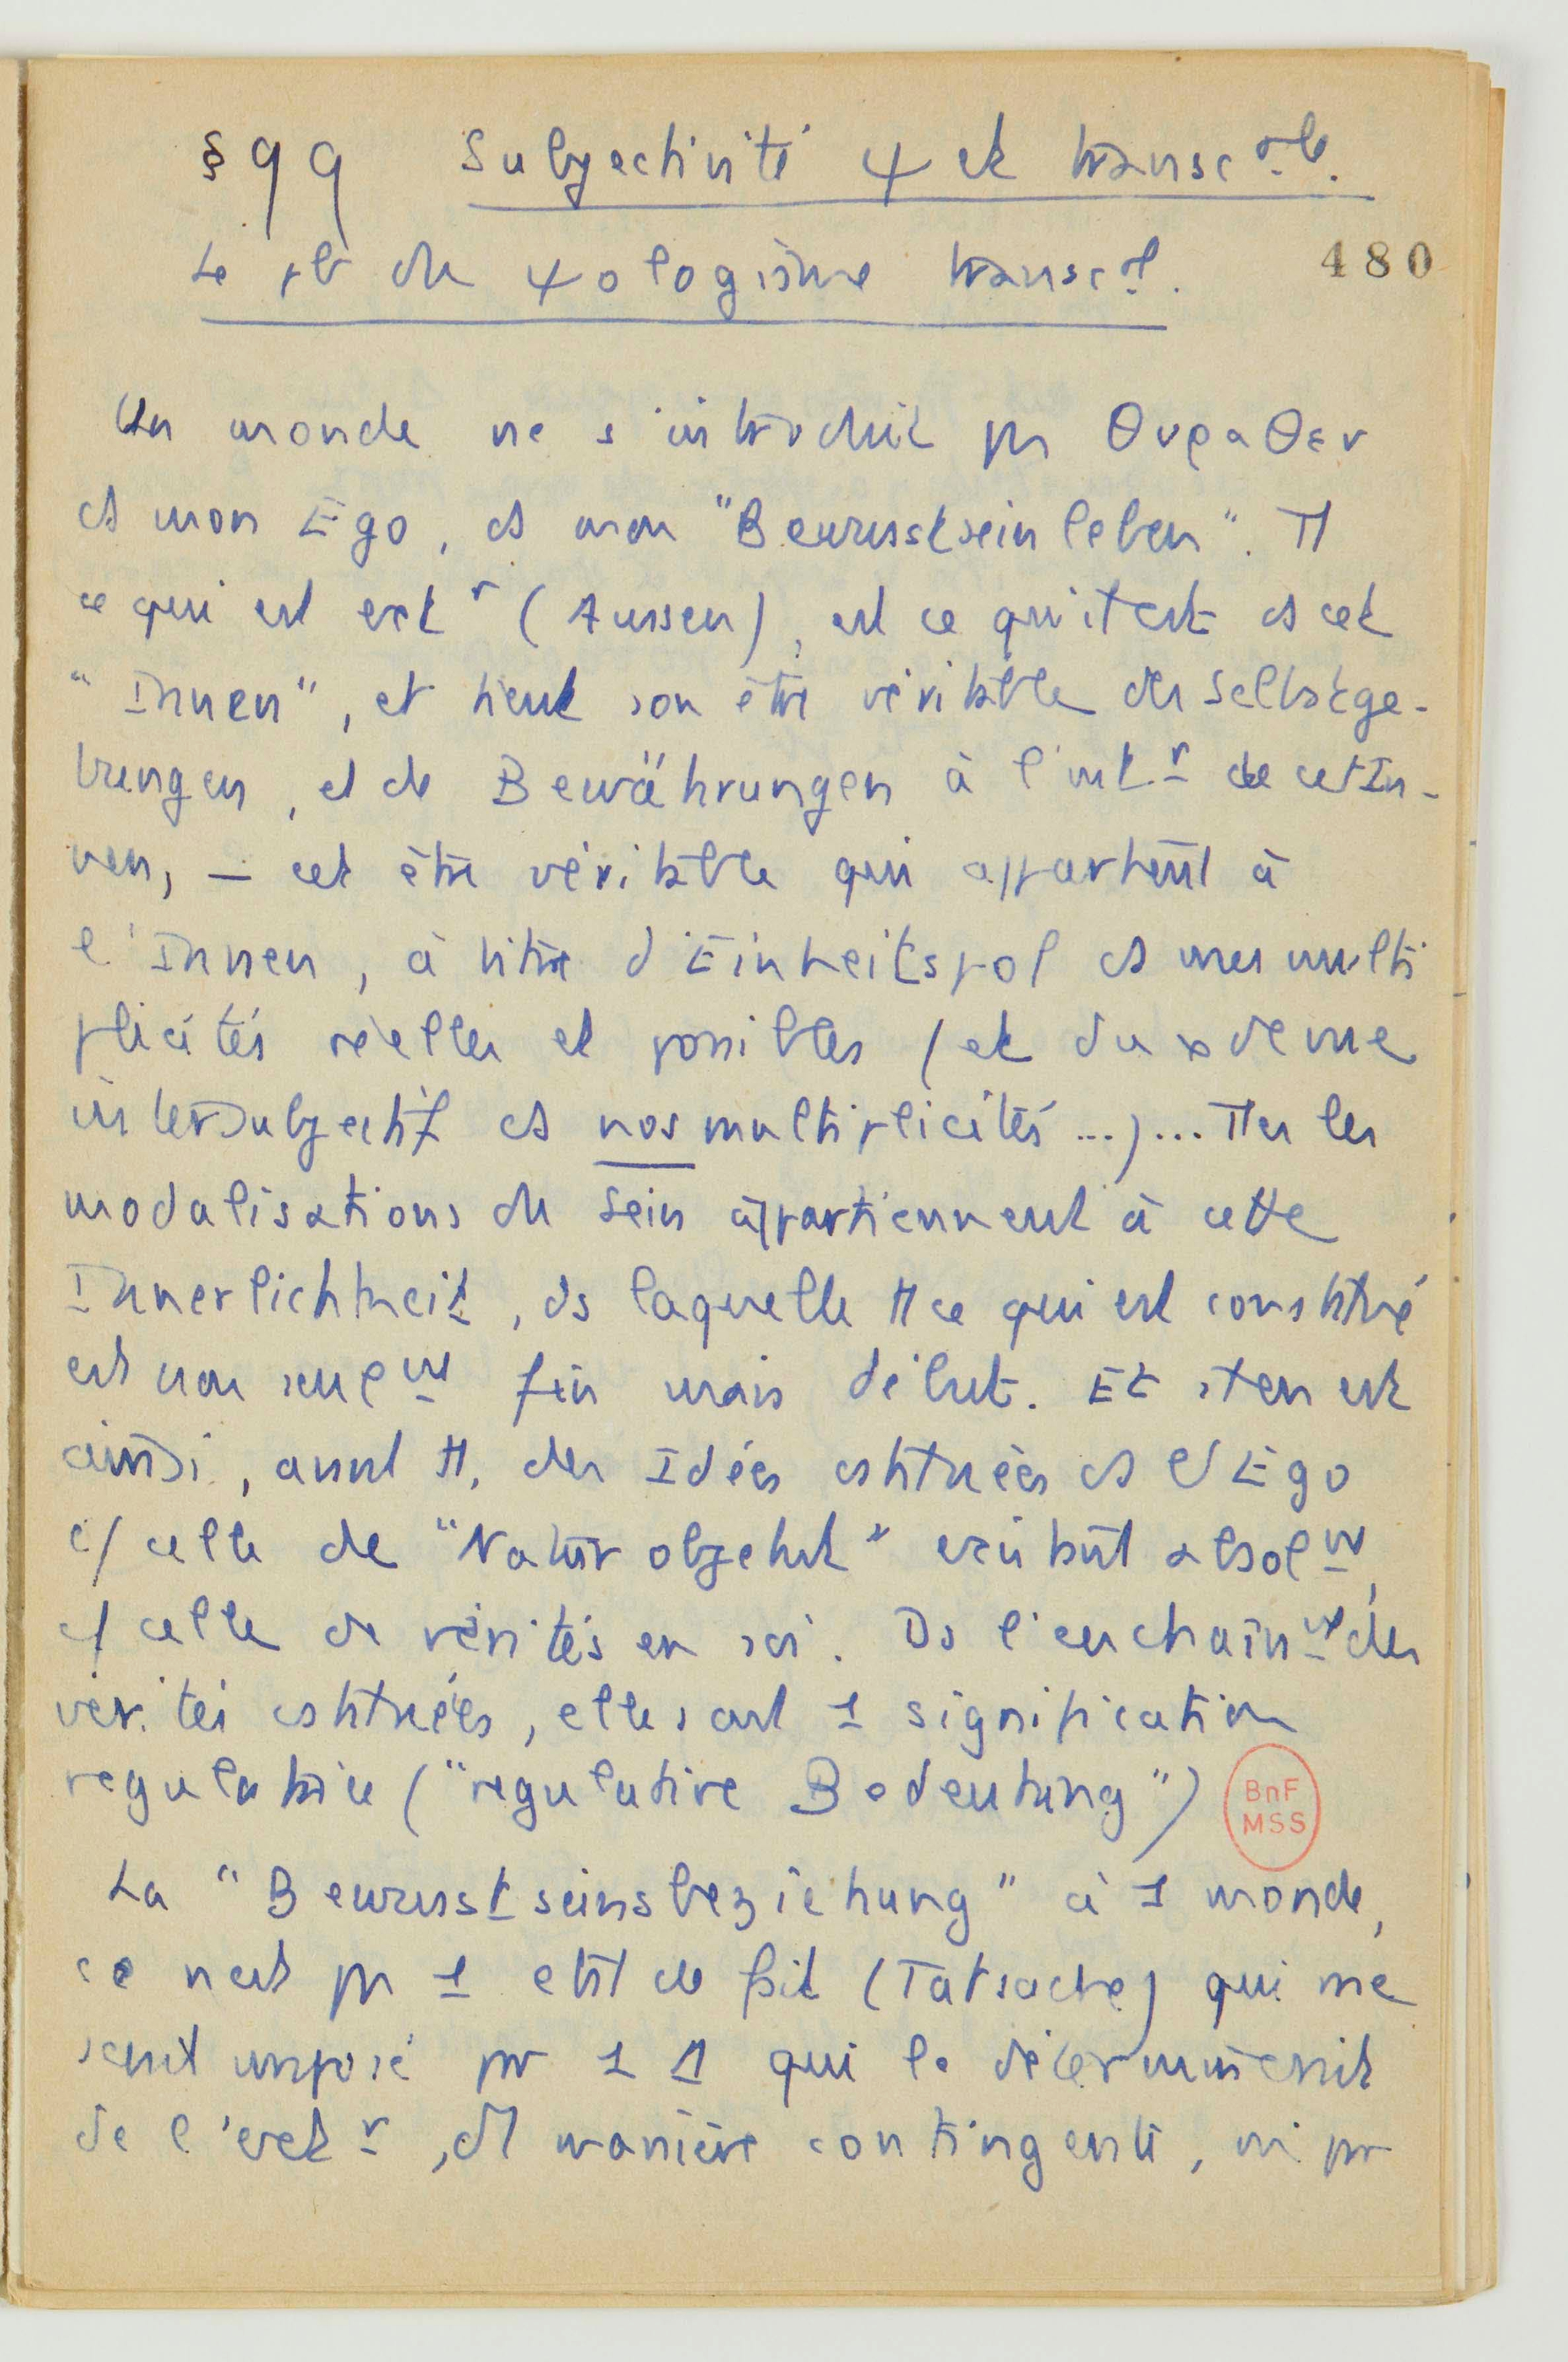 § 99 Subjectivité ψ et transc ale.
480
Le pb du ψologisme transc al.
Un monde ne s'introduit pas θυραθεν
ds mon Ego, ds mon "Bewusstsein leben". Tt
ce qui est ext r (Aussen), est ce qu'il est ds cet
"Innen", et tient son être véritable des Selbstge-
bungen, et de Bewährungen à l'int r de cet In-
nen, — cet être véritable qui appartient à
l'Innen, à titre d'Einheitspol ds mes multi
plicités réelles et possibles (et du
intersubjectif ds nos multiplicités ...)... Ttes les
modalisations du Sein appartiennent à cette
Innerlichkeit, ds laquelle tt ce qui est constitué
est non seule mt fin mais début. Et il en est
ainsi, avant tt, des Idées cstituées ds l'Ego
c/ celle de "Natur objekt" existant absol mt,
c/ celle de vérités en soi. Ds l'enchaîn mt des
vérités cstituées, elles ont 1 signification
régulatrice ("regulative Bedeutung")
BnF
MSS
La "Bewusstseinsbeziehung" à 1 monde,
ce n'est pas 1 état de fait (Tatsache) qui me
serait imposé par 1 qui le déterminerait
de l'ext r, manière contingente, ni par